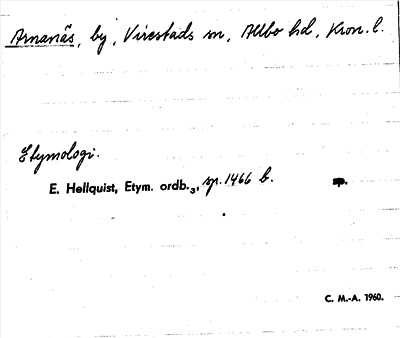 Arnanäs, by, Virestads sn, Allbo hd, Kron. l.
Etymologi.
E. Hellquist, Etym. ordb.3, sp. 1466 b. sp.
C. M.-A. 1960.